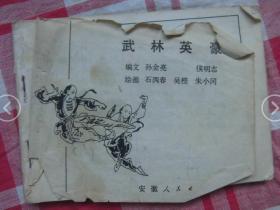 武林英豪
编文 孙金亮 侯明志
绘画 石四春 吴橙 朱小冈
安徽人民